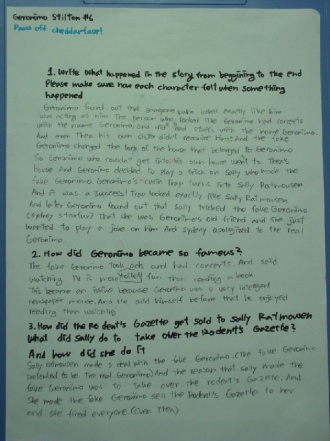 Geronimo Stilton #6
Paws off cheddarface!
1. Write what happened in the story from beggining to the end
Please make sure how each character felt when something
happened
Geronimo found out that someone who looks exactly like him
was acting as him. The person who looked like Geronimo had concerts
with the name Geronimo, and sold stuffs with the name Geronimo.
And even Then his own sister didn't
Geronimo changed the lock of the house that belonged to Geronimo
So Geronimo who couldn't get into his own house went to Thea's
house And Geronimo decided to play a trick on Sally who made the
fake Geronimo. Geronimo's cousin Trap turns into Sally Ratmousen
And it was a success! Trap looked exactly like Sally Ratmousen
And later Geronimo found out that Sally tricked the fake Geronimo
(Sydney) That she was Geronimo's old friend and she just
wanted to play a joke on him And Sydney apologized to the real
Geronimo.
2. How did Geronimo became so famous?
The fake Geronimo and had concerts. And said
watching TV is more fun than reading a book
This became an issue because Geronimo was a very intelligent
newspaper mouse. And he said himself before that he enjoyed
reading then watching
3. How did the Rodent's Gazette get sold to Sally Ratmousen
What did Sally do to take over the Rodent's Gazette?
And how did she do it
Sally Ratmousen made a deal with the fake Geronimo (The fake Geronimo
pretended to be the real Geronimo) And the reason that Sally made the
fake Geronimo was to take over the rodent's Gazette. And
she made the fake Geronimo sell the Rodent's Gazette to her
and she fired everyone (even Thea)